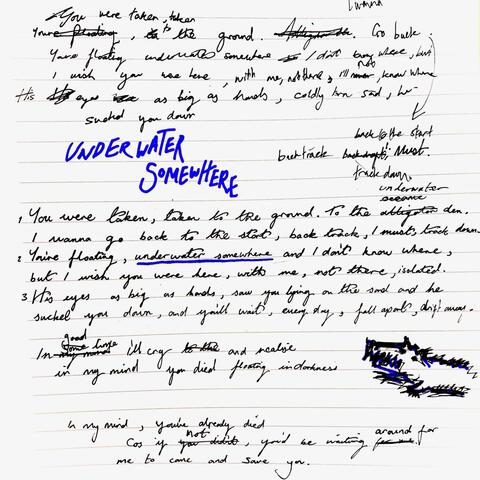 I wanna
You were taken, taken
You're floating, to the ground. Alligator. Go back
You're floating underwater somewhere I don't know where, but
I wish you were here, with me, not there, I'll not know where
His eyes as big as hands, coldly sand, he
sucked you down
UNDERWATER
SOMEWHERE
back to the start
backtrack Must.
track down
underwater
1 You were taken, taken to the ground. To the alligator den.
I wanna go back to the start, back track, I must track down
2 You're floating, underwater somewhere and I don't know where,
but I wish you were here, with me, not there, isolated.
3 His eyes as big as hands, saw you lying on the sand and he
sucked you down, and you'll wait, every day, fall apart, drift away.
good
In some time I'll cry to the and realise
in my mind you died floating in darkness
In my mind, you've already died
Cos if you didn't not, you'd be waiting around for
me to come and save you.